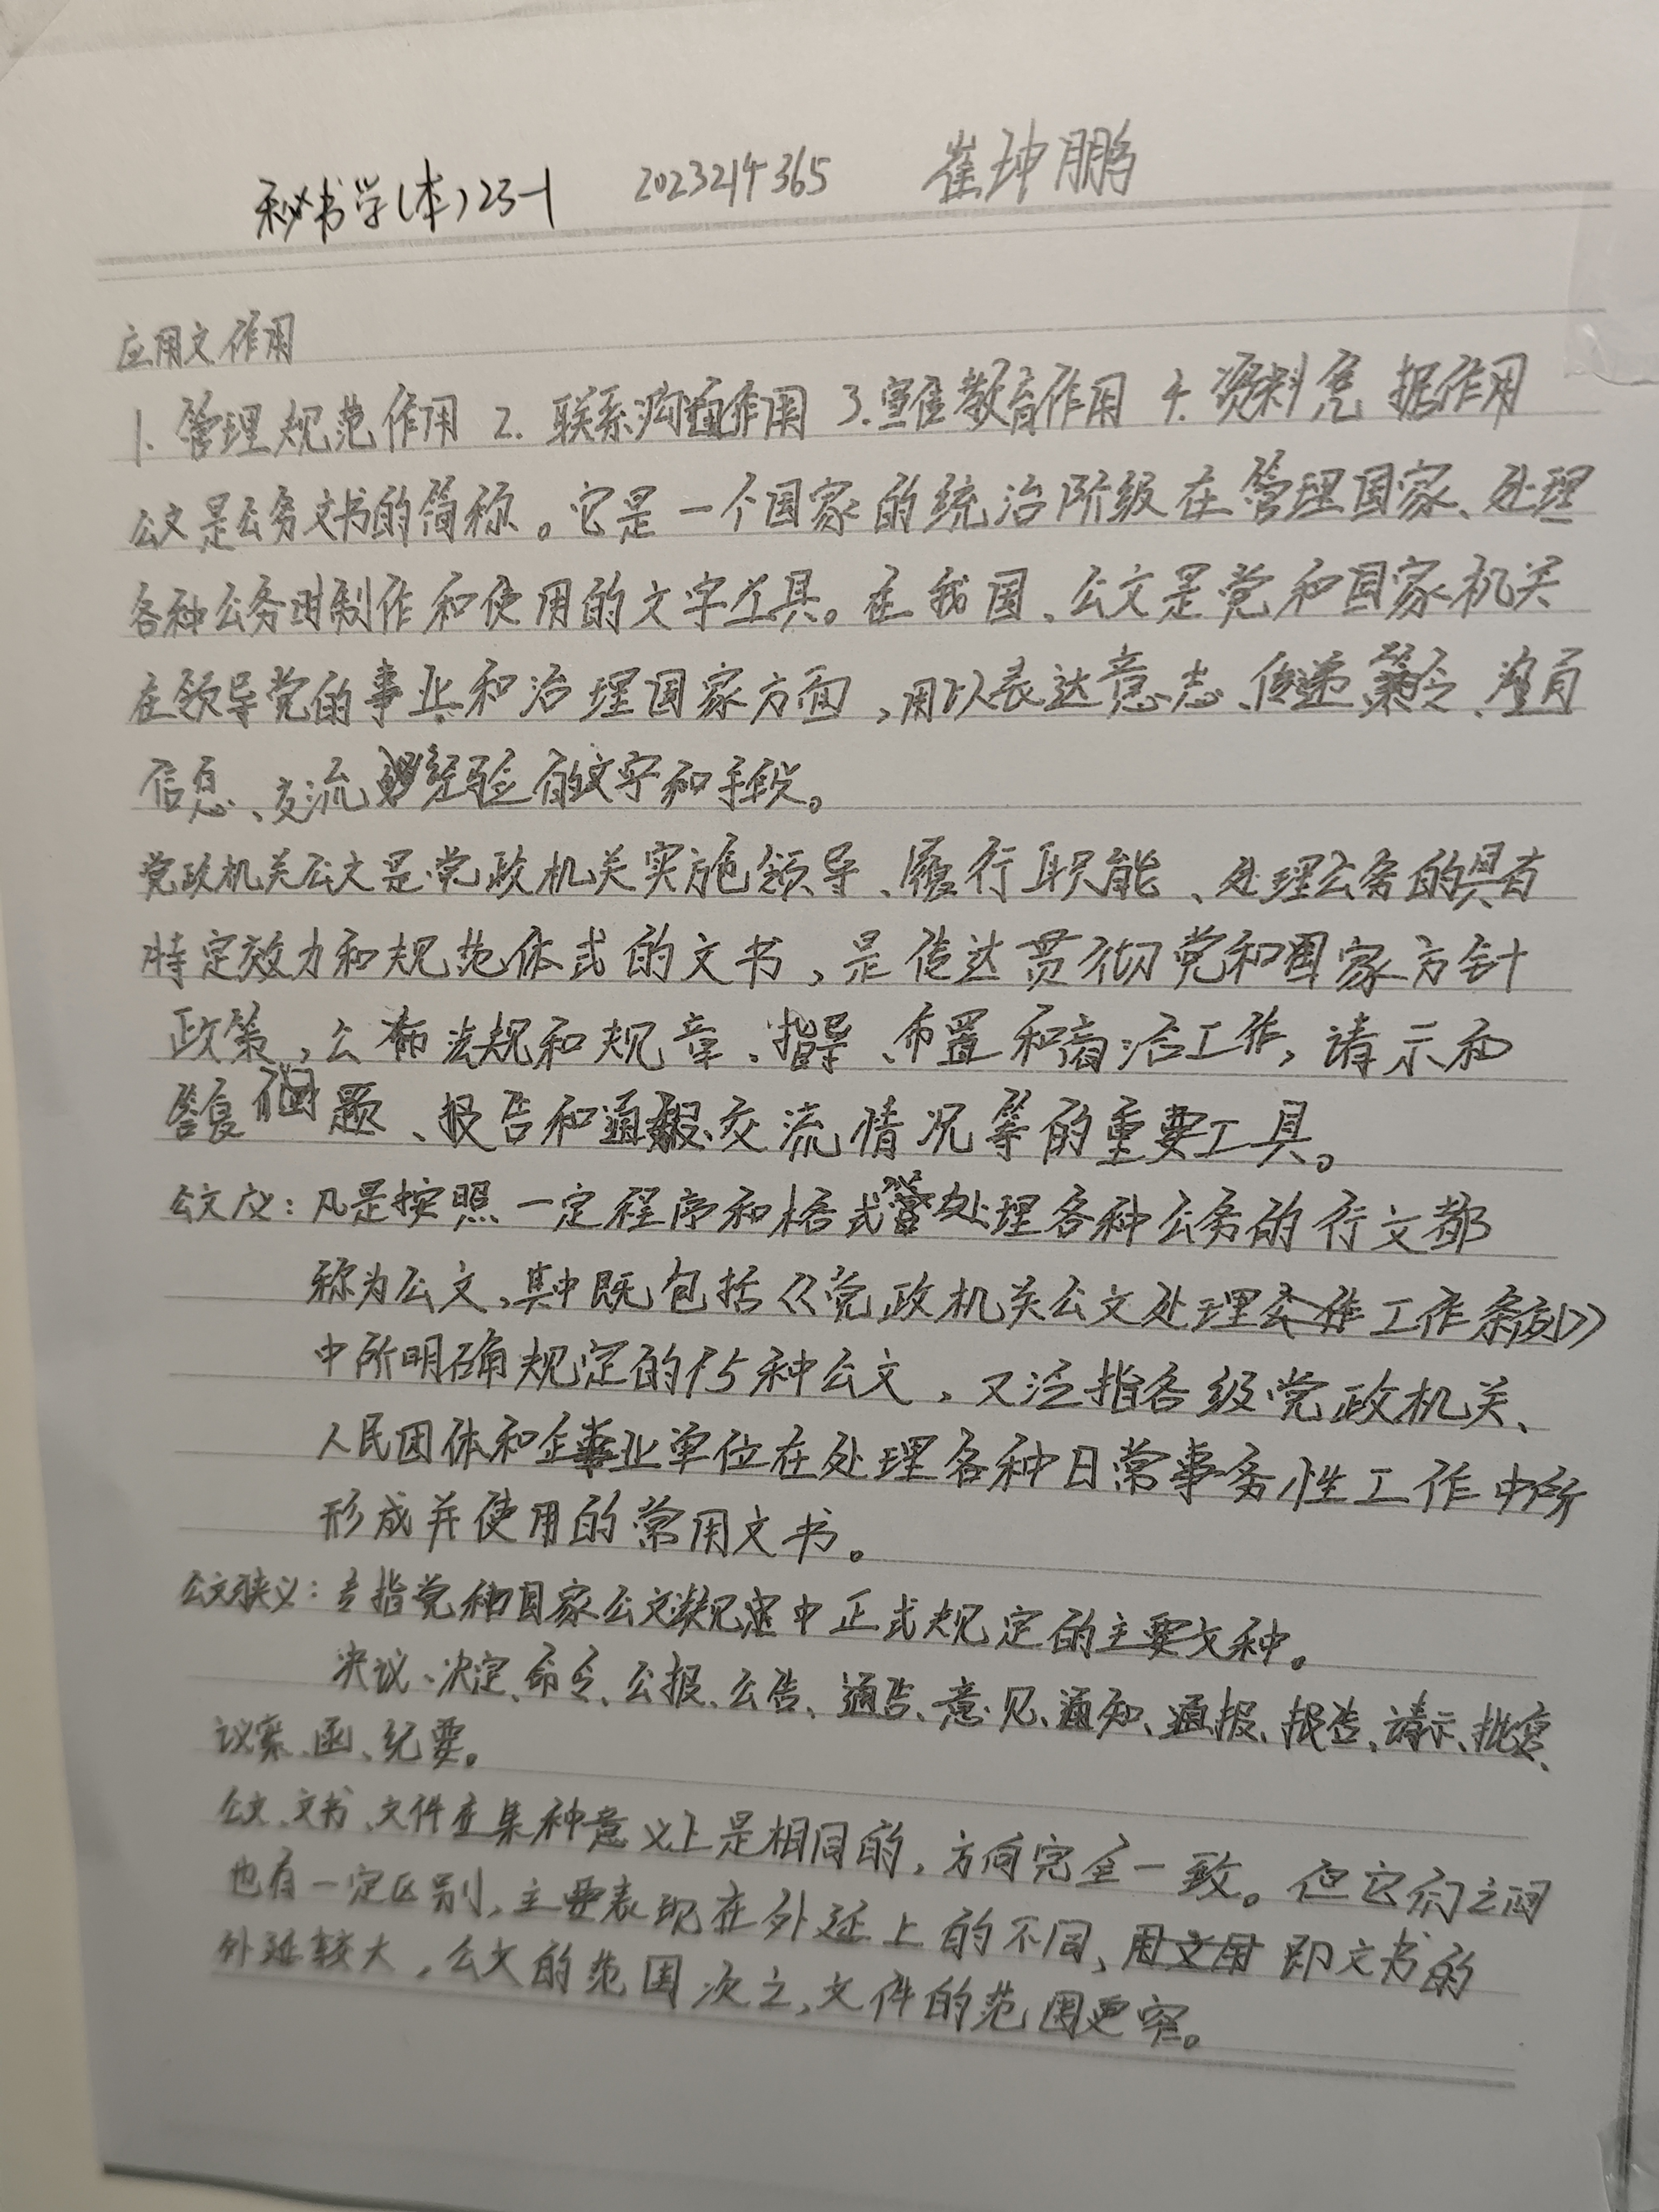 秘书学(本)23-1 2023214365 崔珅鹏
应用文作用
1. 管理规范作用 2. 联系沟通作用 3. 宣传教育作用 4. 资料凭据作用
公文是公务文书的简称。它是一个国家的统治阶级在管理国家、处理
各种公务时制作和使用的文字工具。在我国、公文是党和国家机关
在领导党的事业和治理国家方面,用以表达意志、传递策令、沟通
信息、交流经验的文字和手段。
党政机关公文是党政机关实施领导、履行职能、处理公务的具有
特定效力和规范体式的文书,是传达贯彻党和国家方针
政策,公布法规和规章、指导、布置和商洽工作,请示和
答复问题、报告和通报交流情况等的重要工具。
公文广义:凡是按照一定程序和格式处理各种公务的行文都
称为公文,其中既包括《党政机关公文处理工作条例》
中所明确规定的15种公文,又泛指各级党政机关、
人民团体和企事业单位在处理各种日常事务性工作中所
形成并使用的常用文书。
公文狭义:专指党和国家公文法规中正式规定的主要文种。
决议、决定、命令、公报、公告、通告、意见、通知、通报、报告、请示、批复、
议案、函、纪要。
公文、文书、文件在某种意义上是相同的,方向完全一致。但它们之间
也有一定区别,主要表现在外延上的不同,即文书的
外延较大,公文的范围次之,文件的范围更窄。